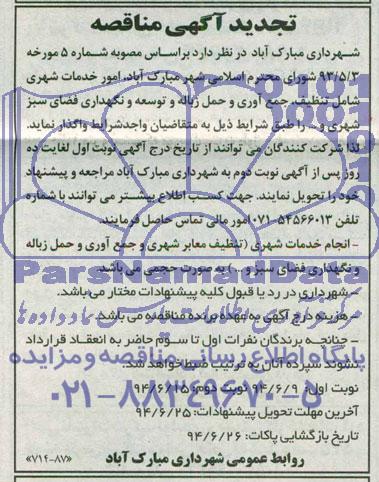 تجدید آگهی مناقصه
شهرداری مبارک آباد در نظر دارد براساس مصوبه شماره ۵ مورخه
۹۳/۵/۳ شورای محترم اسلامی شهر مبارک آباد، امور خدمات شهری
شامل تنظیف، جمع آوری و حمل زباله و توسعه و نگهداری فضای سبز
شهری و... را طبق شرایط ذیل به متقاضیان واجدشرایط واگذار نماید.
لذا شرکت کنندگان می توانند از تاریخ درج آگهی نوبت اول لغایت ده
روز پس از آگهی نوبت دوم به شهرداری مبارک آباد مراجعه و پیشنهاد
خود را تحویل نمایند. جهت کسب اطلاع بیشتر می توانند با شماره
تلفن ۵۴۵۶۶۰۱۳-۰۷۱ امور مالی تماس حاصل فرمایند.
- انجام خدمات شهری (تنظیف معابر شهری و جمع آوری و حمل زباله
و نگهداری فضای سبز و ..) به صورت حجمی می باشد.
- شهرداری در رد یا قبول کلیه پیشنهادات مختار می باشد.
- هزینه درج آگهی به عهده برنده مناقصه می باشد.
- چنانچه برندگان نفرات اول تا سوم حاضر به انعقاد قرارداد
نشوند سپرده آنان به ترتیب ضبط خواهد شد.
نوبت اول: ۹۴/۶/۹ نوبت دوم: ۹۴/۶/۱۵
آخرین مهلت تحویل پیشنهادات: ۹۴/۶/۲۵
تاریخ بازگشایی پاکات: ۹۴/۶/۲۶
روابط عمومی شهرداری مبارک آباد
«۷۱۴-۸۷»
ParsNamadData
پایگاه اطلاع رسانی مناقصه و مزایده
۰۲۱-۸۸۳۴۹۶۷۰-۵